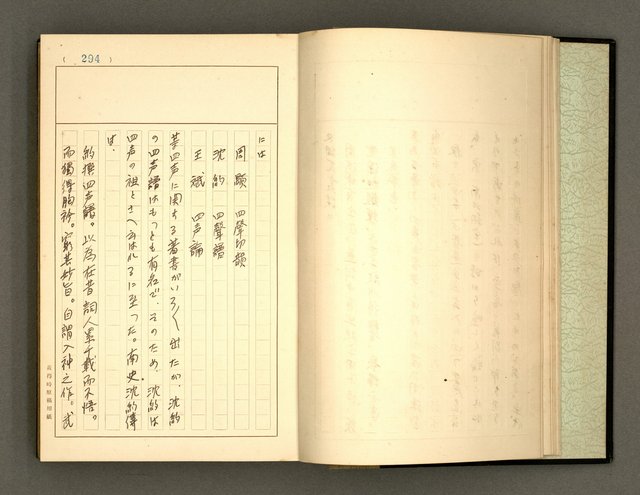 ( 294 )
には
周顒 四聲切韻
沈約 四聲譜
王斌 四声論
等四声に関する著書がいろ〱出たが、沈約
の四声譜はもつとも有名で、そのため、沈約は
四声の祖とさへ云はれるに至つた。南史沈約傳
は、
約撰四声譜。以為在昔詞人累千載而不悟。
而獨得胸衿。窮其妙旨。自謂入神之作。武
黃得時原稿用紙